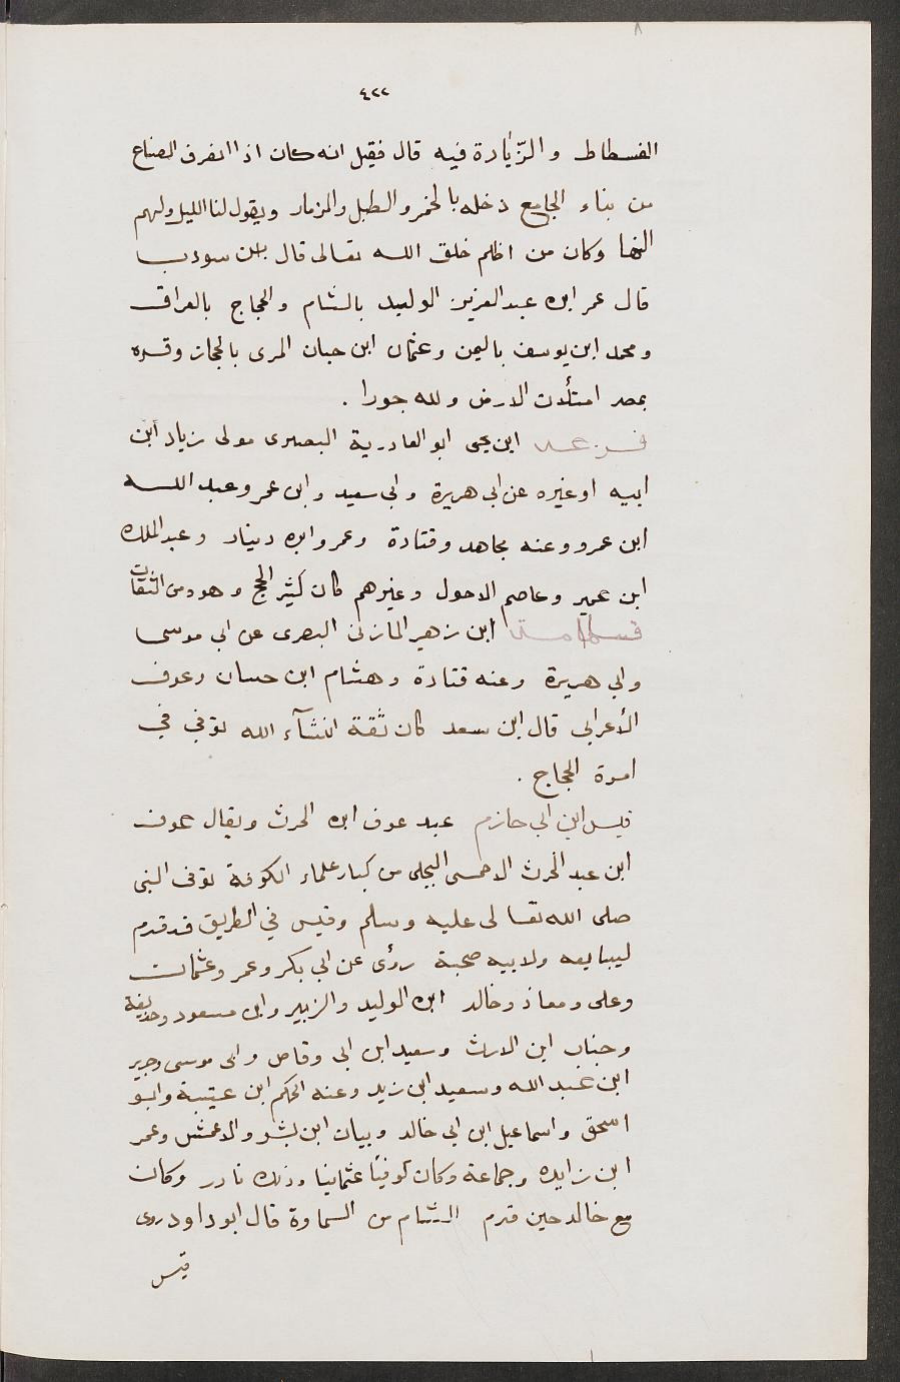 ٤٢٢
الفسطاط والزيادة فيه قال فقيل انه كان اذا انصرف الصناع
من بناء الجامع دخله بالخمر والطبل والمزمار ويقول لنا الليل ولهم
النها وكان من اظلم خلق الله تعالى قال
قال عمر ابن عبد العزيز الوليد بالشام والحجاج بالعراق
ومحمد ابن يوسف باليمن وعثمان ابن حبان المرى بالحجاز وقره
بمصر امتلأت الارض ولله جورا .
قزعه ابن يحيى ابو الغادرية البصرى مولى زياد ابن
ابيه او غيره عن ابى هريرة وابى سعيد وابن عمر وعبد الله
ابن عمرو وعنه مجاهد وقتادة وعمرو ابن دينار وعبد الملك
ابن عمير وعاصم الاحول وغيرهم كان كثير الحج وهو من الثقات
قسامة ابن زهير المازنى البصرى عن ابى موسى
وابى هريرة وعنه قتادة وهشام ابن حسان وعوف
الأعرابى قال ابن سعد كان ثقة انشآء الله توفى في
امرة الحجاج .
قيس ابن ابى حازم عبد عوف ابن الحرث ويقال عوف
ابن عبد الحرث الاحمسى البجلى من كبار علماء الكوفة توفى النبى
صلى الله تعالى عليه وسلم وقيس في الطريق قد قدم
ليبايعه ولابيه صحبة روى عن ابى بكر وعمر وعثمان
وعلى ومعاذ وخالد ابن الوليد والزبير وابن مسعود وحذيفة
وخباب ابن الارث وسعيد ابن ابى وقاص وابى موسى وجرير
ابن عبد الله وسعيد ابن زيد وعنه الحكم ابن عتيبة وابو
اسحق واسماعيل ابن ابى خالد وبيان ابن بشر والاعمش وعمر
ابن زايده وجماعة وكان كوفيا عثمانيا وذلك نادر وكان
مع خالد حين قدم الشام من السماوة قال ابو داود روى
قيس